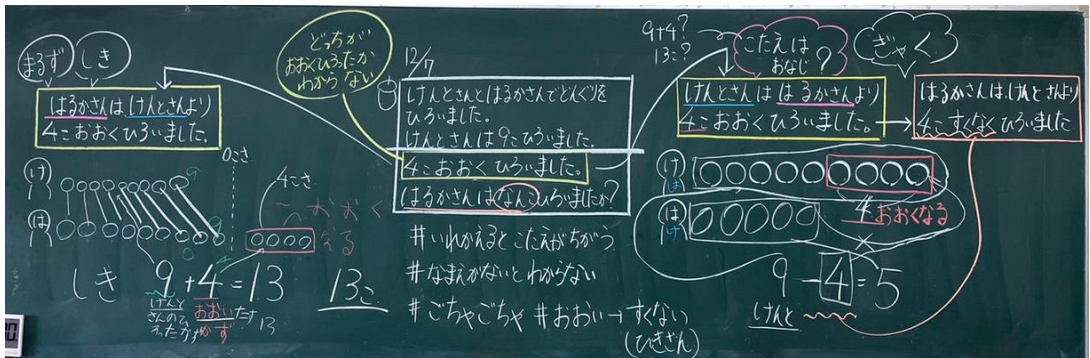 まるず
しき
はるかさんは けんとさんより
4こおおくひろいました。
0こさ
け
は
4こさ
おおく
しき 9+4=13
けんと
さんの
おおい
かず
たす
13
13こ
どっちが
おおくひろったか
わからない
12/7
けんとさんとはるかさんでどんぐりを
ひろいました。
けんとさんは9こひろいました。
4こおおくひろいました。
はるかさんはなんこひろいましたか?
#いれかえるとこたえがちがう
#なまえがないとわからない
#ごちゃごちゃ #おおい→すくない
(ひきざん)
9+4?
13=?
こたえは
おなじ?
ぎゃく
けんとさんは はるかさんより
4こおおくひろいました。
はるかさんは、けんとさんより
4こすくなくひろいました
け
は
は
け
4おおくなる
9-4=5
けんと